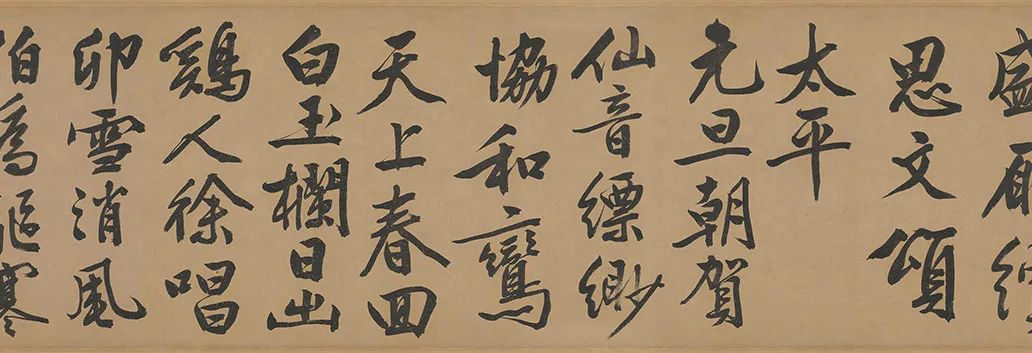 盛
思文頌
太平
元旦朝賀
仙音縹緲
協和鸞
天上春回
白玉欄日出
鷄人徐唱
卯雪消風
為寒